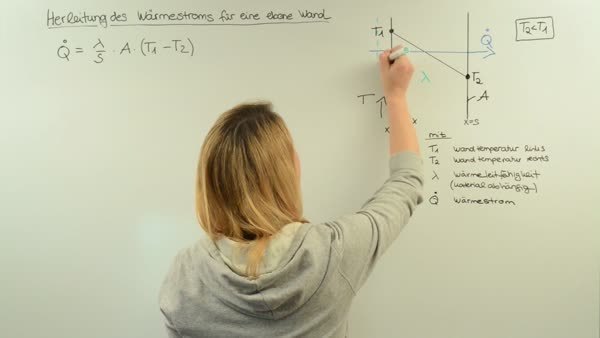 Herleitung des Wärmestroms für eine ebene Wand
Q̇ = λ/s · A · (T1 - T2)
T2<T1
T1
Q̇
T2
λ
T
A
x
x
x=s
mit
T1 Wandtemperatur links
T2 Wandtemperatur rechts
λ Wärmeleitfähigkeit
(materialabhängig)
Q̇ Wärmestrom